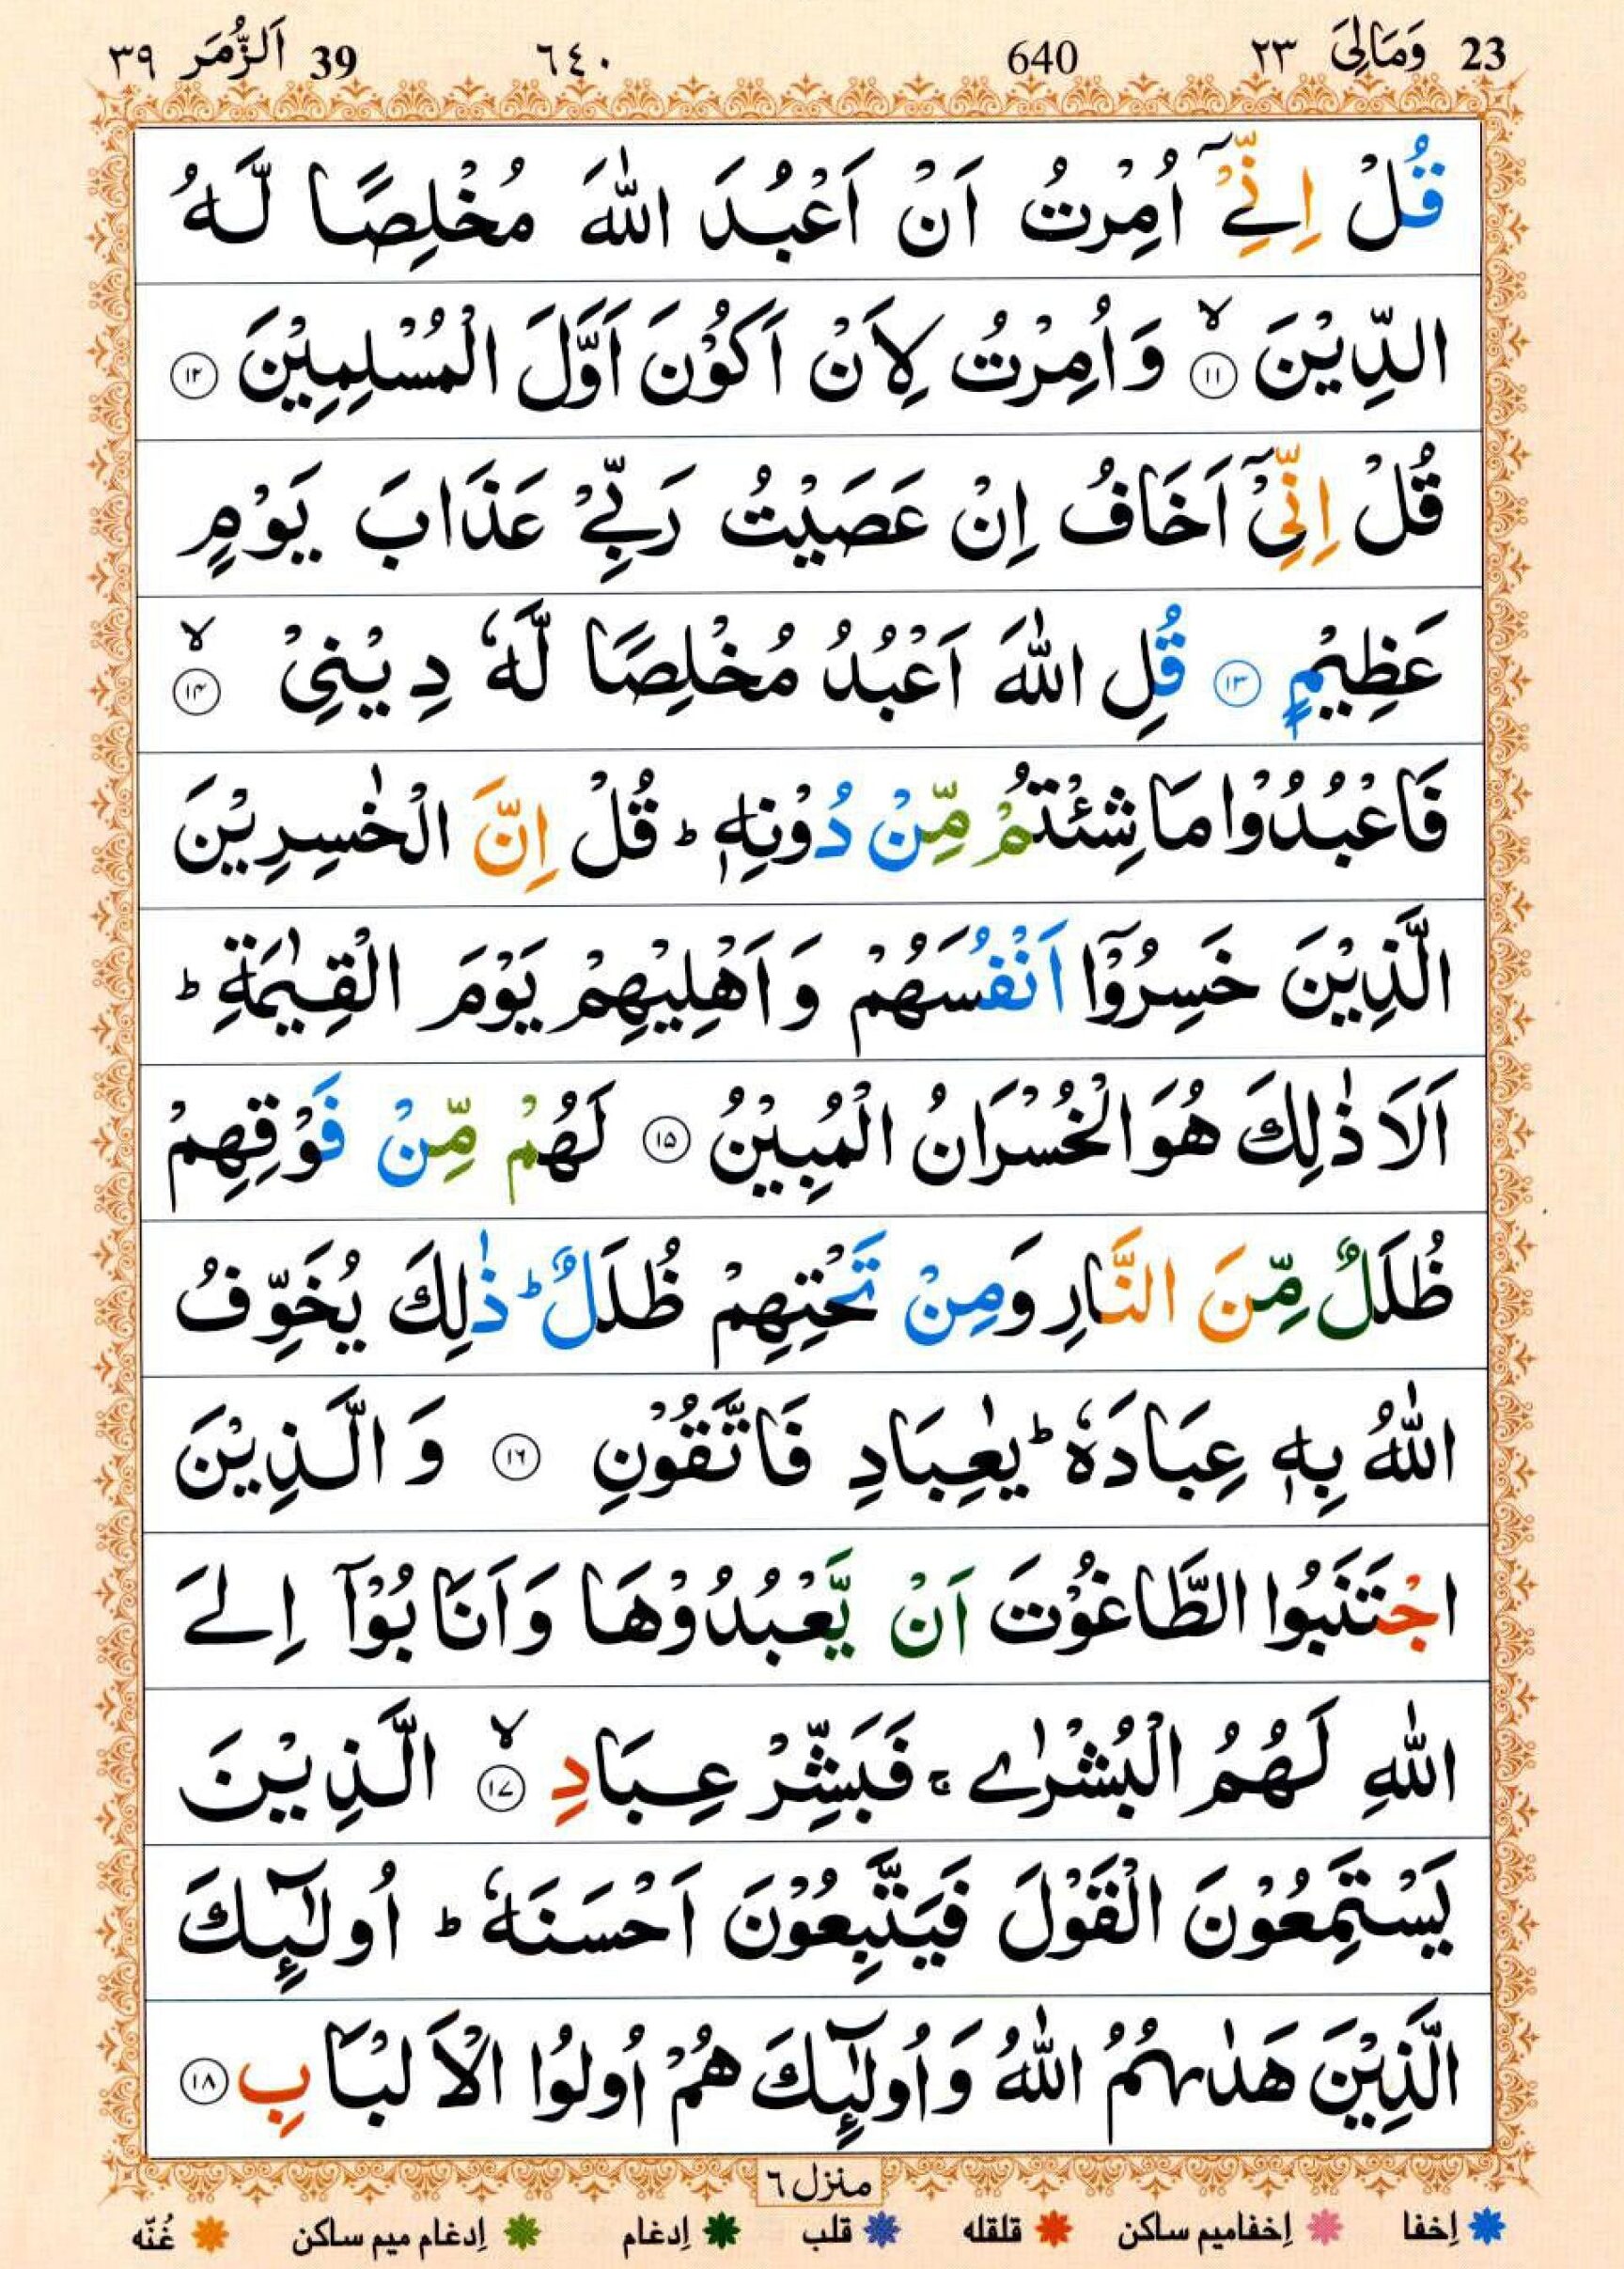 23 وَمَالِىَ ٢٣ 640 ٦٤٠ 39 اَلزُّمَر ٣٩
قُلْ اِنِّیْۤ اُمِرْتُ اَنْ اَعْبُدَ اللّٰهَ مُخْلِصًا لَّهُ
الدِّیْنَ ۙ﴿۱۱﴾ وَ اُمِرْتُ لِاَنْ اَكُوْنَ اَوَّلَ الْمُسْلِمِیْنَ ﴿۱۲﴾
قُلْ اِنِّیْۤ اَخَافُ اِنْ عَصَیْتُ رَبِّیْ عَذَابَ یَوْمٍ
عَظِیْمٍ ﴿۱۳﴾ قُلِ اللّٰهَ اَعْبُدُ مُخْلِصًا لَّهٗ دِیْنِیْ ۙ﴿۱۴﴾
فَاعْبُدُوْا مَا شِئْتُمْ مِّنْ دُوْنِهٖ ؕ قُلْ اِنَّ الْخٰسِرِیْنَ
الَّذِیْنَ خَسِرُوْۤا اَنْفُسَهُمْ وَ اَهْلِیْهِمْ یَوْمَ الْقِیٰمَةِ ؕ
اَلَا ذٰلِكَ هُوَ الْخُسْرَانُ الْمُبِیْنُ ﴿۱۵﴾ لَهُمْ مِّنْ فَوْقِهِمْ
ظُلَلٌ مِّنَ النَّارِ وَ مِنْ تَحْتِهِمْ ظُلَلٌ ؕ ذٰلِكَ یُخَوِّفُ
اللّٰهُ بِهٖ عِبَادَهٗ ؕ یٰعِبَادِ فَاتَّقُوْنِ ﴿۱۶﴾ وَ الَّذِیْنَ
اجْتَنَبُوا الطَّاغُوْتَ اَنْ یَّعْبُدُوْهَا وَ اَنَابُوْۤا اِلَی
اللّٰهِ لَهُمُ الْبُشْرٰی ۚ فَبَشِّرْ عِبَادِ ۙ﴿۱۷﴾ الَّذِیْنَ
یَسْتَمِعُوْنَ الْقَوْلَ فَیَتَّبِعُوْنَ اَحْسَنَهٗ ؕ اُولٰٓىِٕكَ
الَّذِیْنَ هَدٰىهُمُ اللّٰهُ وَ اُولٰٓىِٕكَ هُمْ اُولُوا الْاَلْبَابِ ﴿۱۸﴾
منزل ٦
إخفا إخفاميم ساكن قلقله قلب إدغام إدغام ميم ساكن غُنّه